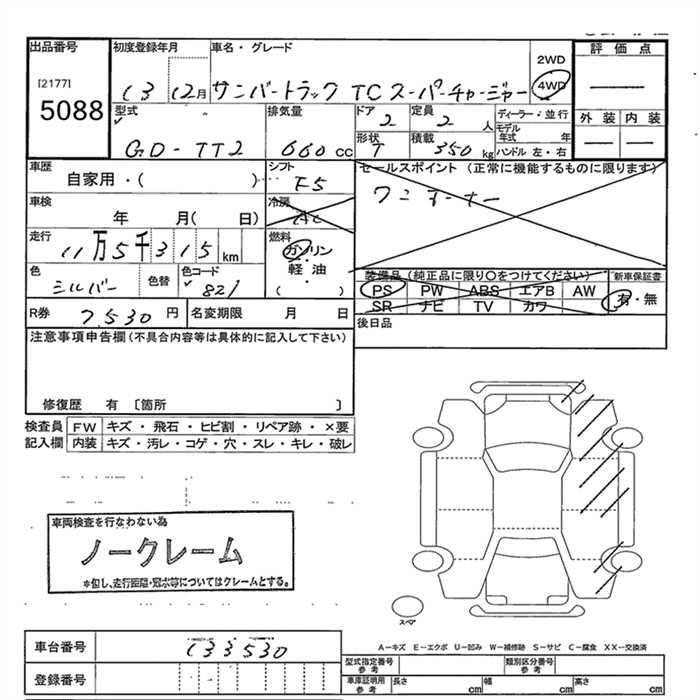 出品番号 初度登録年月 車名・グレード 評価点
[2177] 5088
13 12月 サンバートラック TC スーパーチャージャー 2WD 4WD
型式 排気量 ドア 定員 ディーラー・並行 外装 内装
GD-TT2 660cc 2 2人 モデル年式 年
形状 T 積載 350kg ハンドル 左・右
車歴 シフト セールスポイント (正常に機能するものに限ります)
自家用・( ) F5 ワンオーナー
車検 冷房
年 月( 日) AC
走行 燃料
11万5千315km ガソリン・軽油 ( )
色 色替 色コード 装備品 (純正品に限り○をつけてください) 新車保証書
シルバー 821 PS PW ABS エアB AW 有・無
SR ナビ TV カワ
R券 7,530円 名変期限 月 日 後日品
注意事項申告欄(不具合内容等は具体的に記入して下さい)
修復歴 有 〔箇所 〕
検査員記入欄 FW キズ・飛石・ヒビ割・リペア跡・×要
内装 キズ・汚レ・コゲ・穴・スレ・キレ・破レ
車両検査を行なわない為
ノークレーム
※但し、走行距離・冠水等についてはクレームとする。
スペア
A－キズ E－エクボ U－凹み W－補修跡 S－サビ C－腐食 XX－交換済
車台番号 133530
登録番号
型式指定番号 参考 類別区分番号 参考
車庫証明用 参考 長さ cm 幅 cm 高さ cm